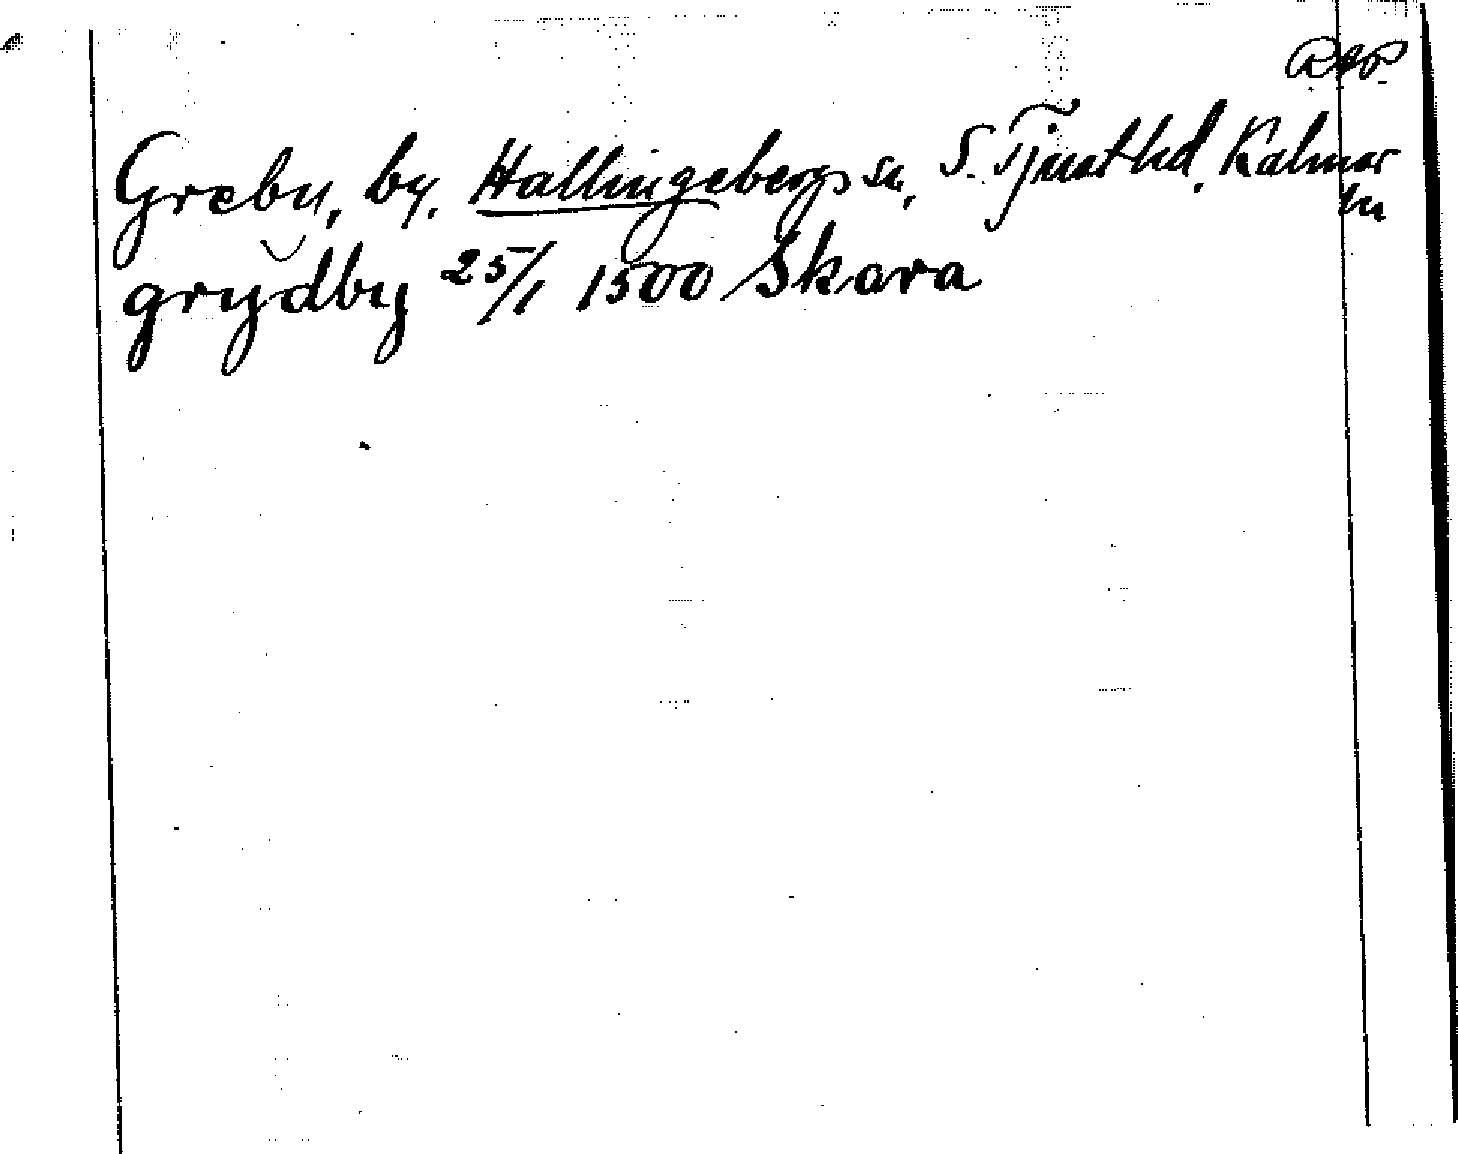 RAP
Greby, by, Hallingebergs sn, S. Tjust hd, Kalmar
ln
grydby 25/1 1500 Skara